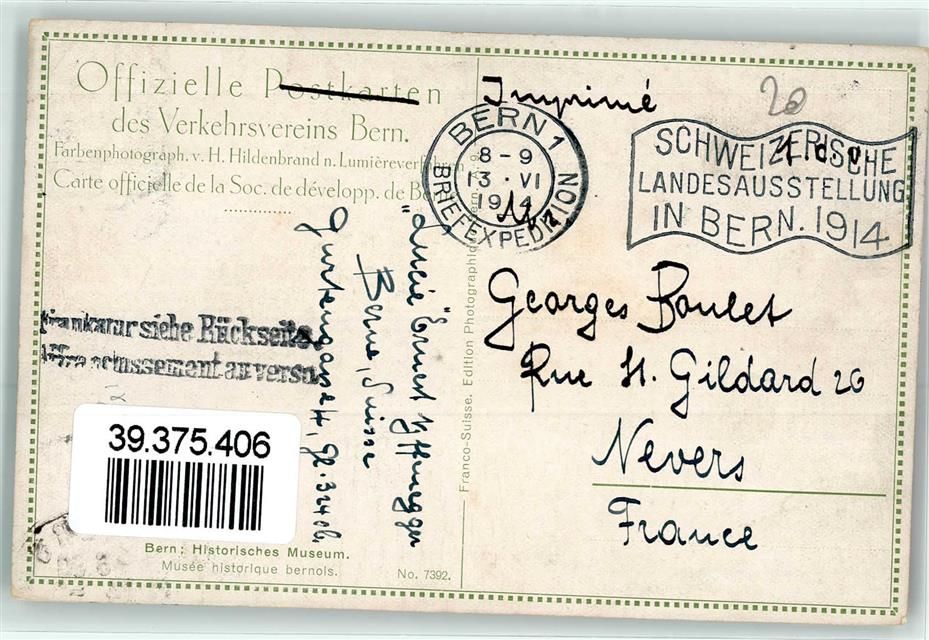 Offizielle Postkarten
des Verkehrsvereins Bern.
Farbenphotograph. v. H. Hildenbrand n. Lumièreverfahren
Carte officielle de la Soc. de développ. de Berne
Imprimé
20
BERN 1
8-9
13 · VI
1914
BRIEFEXPEDITION
SCHWEIZERISCHE
LANDESAUSSTELLUNG
IN BERN. 1914
Georges Boulet
Rue St. Gildard 20
Nevers
France
"Lucie" Ernest
Berne, Suisse
Frankatur siehe Rückseite
Affranchissement au verso
39.375.406
Franco-Suisse. Edition Photographique
Bern: Historisches Museum.
Musée historique bernois.
No. 7392.